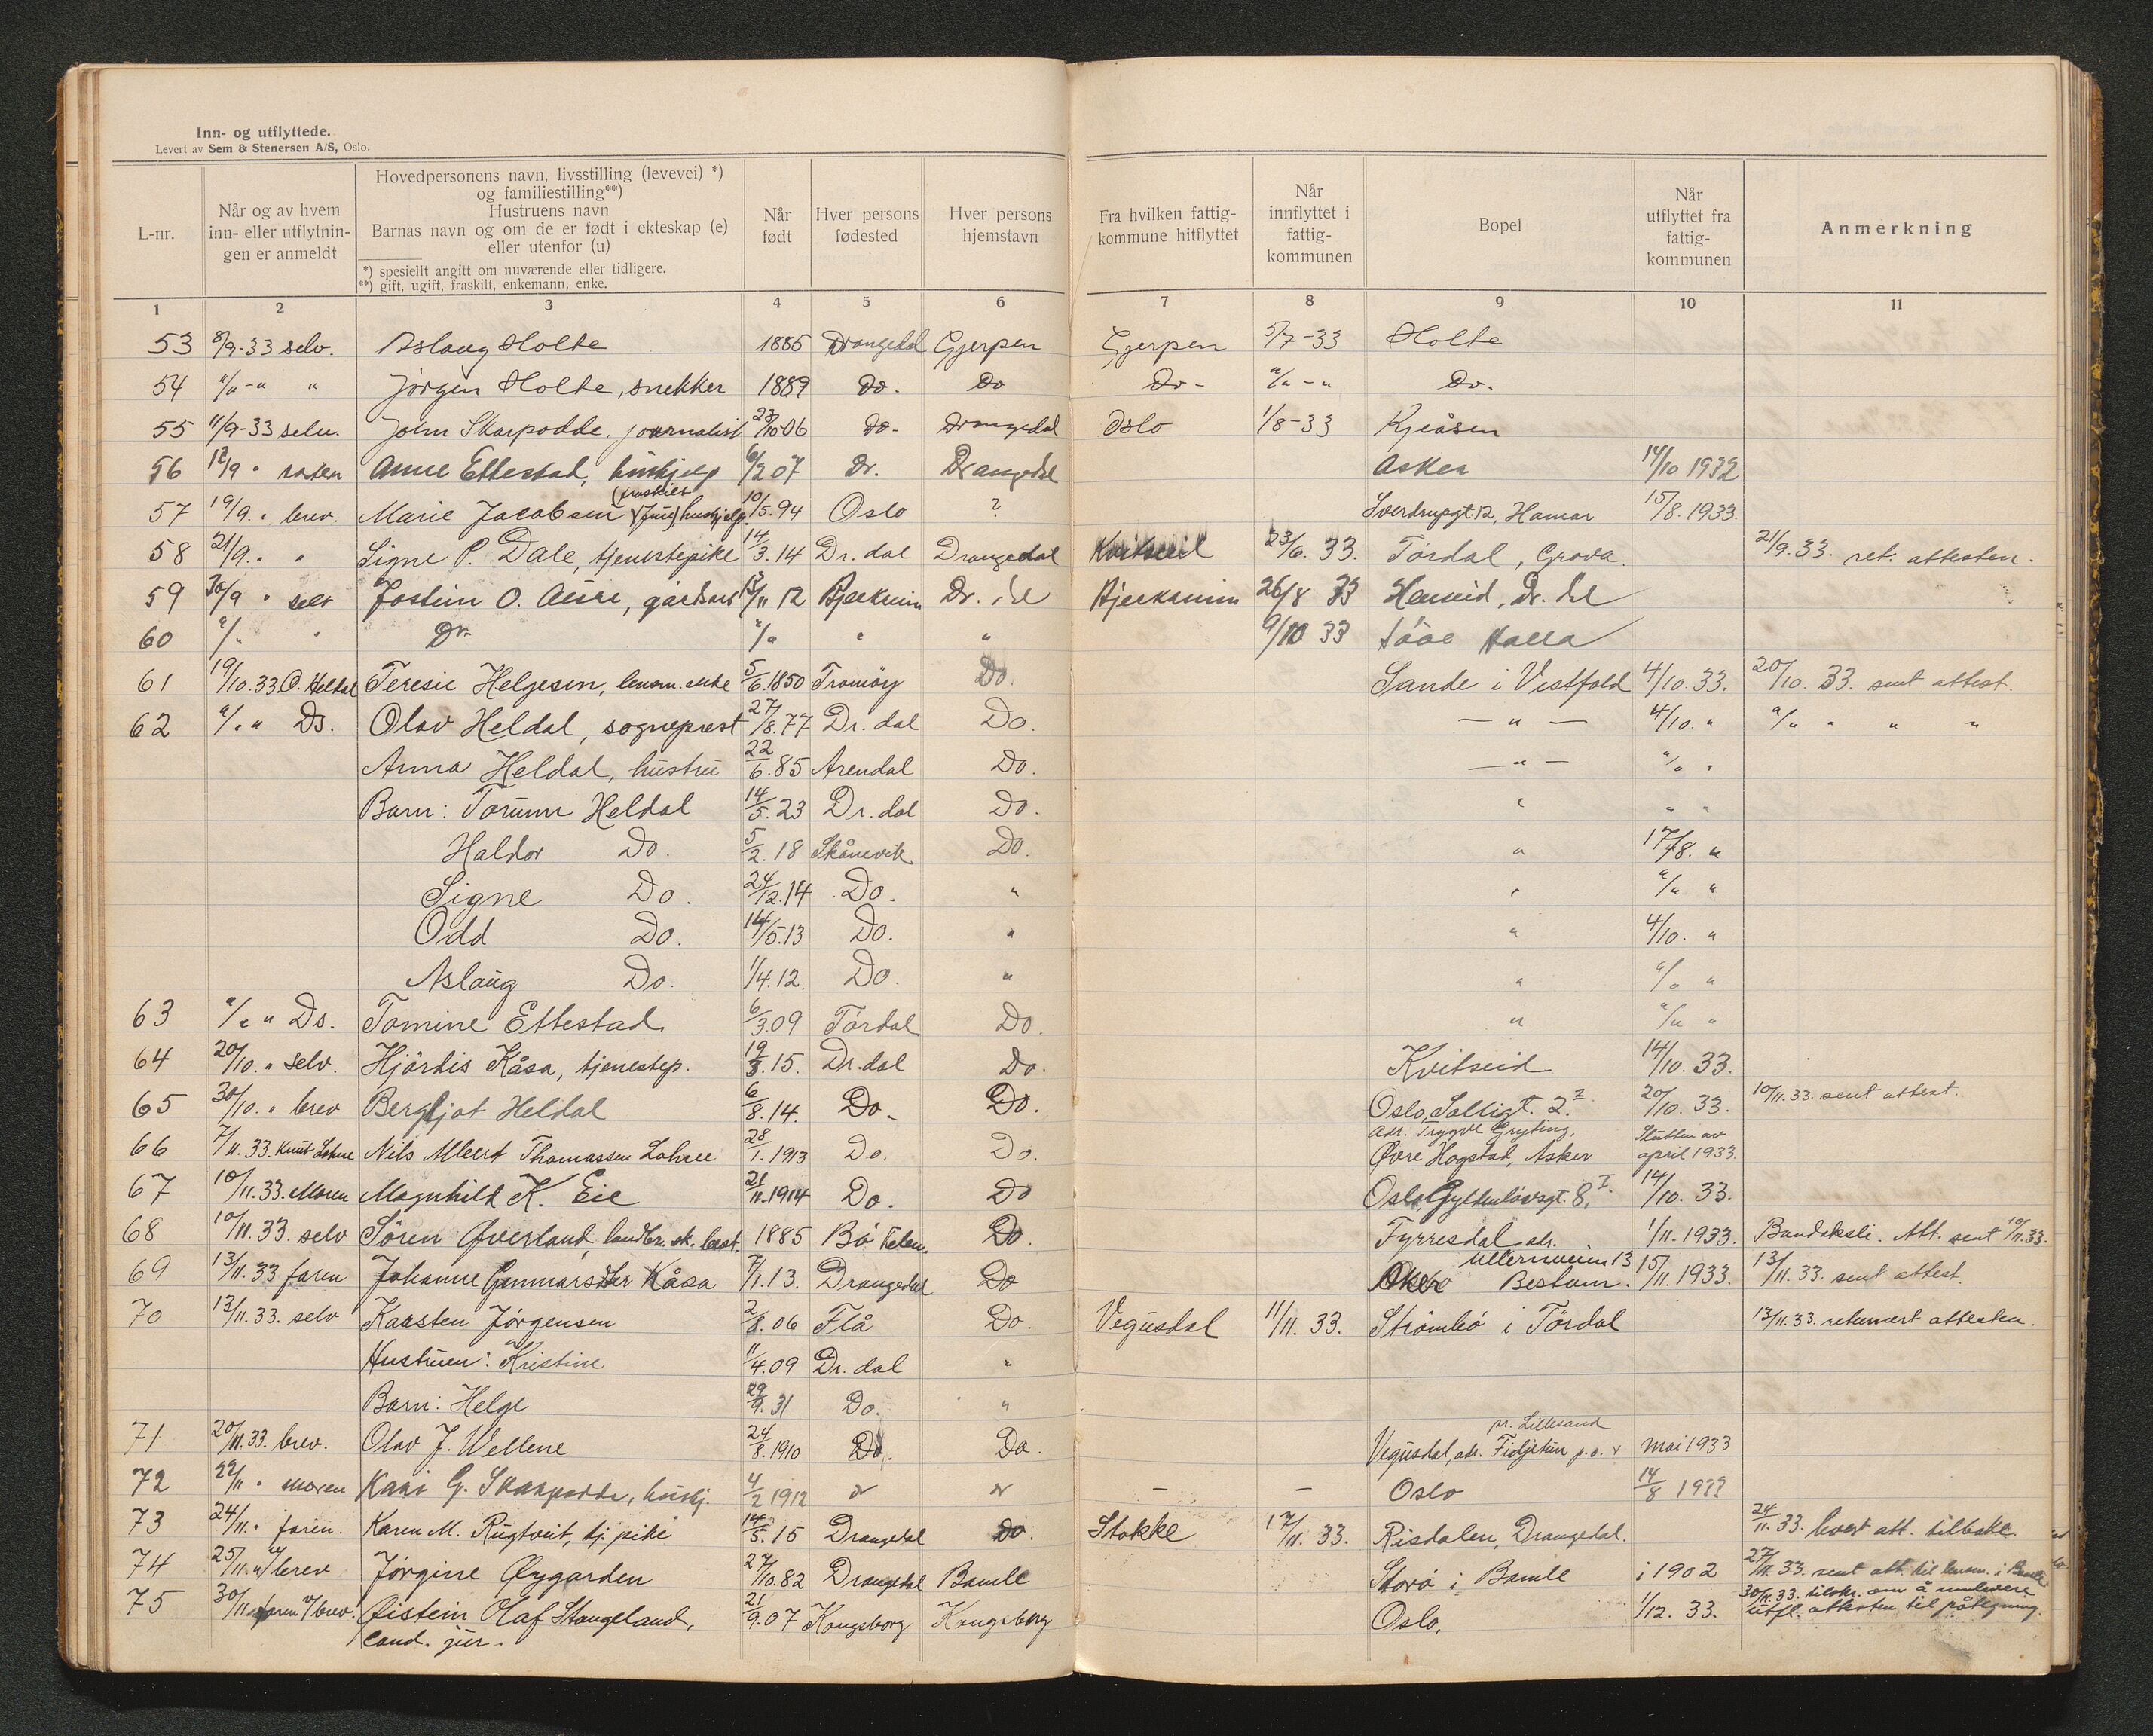 Inn- og utflyttede.
Levert av Sem & Stenersen A/S, Oslo.
L-nr.
Når og av hvem
inn- eller utflytnin-
gen er anmeldt
Hovedpersonens navn, livsstilling (levevei) *)
og familiestilling**)
Hustruens navn
Barnas navn og om de er født i ekteskap (e)
eller utenfor (u)
*) spesiellt angitt om nuværende eller tidligere.
**) gift, ugift, fraskilt, enkemann, enke.
Når
født
Hver persons
fødested
Hver persons
hjemstavn
Fra hvilken fattig-
kommune hitflyttet
Når
innflyttet i
fattig-
kommunen
Bopel
Når
utflyttet fra
fattig-
kommunen
Anmerkning
1 2 3 4 5 6 7 8 9 10 11
53 8/9-33 selv. Aslaug Holte 1885 Drangedal Gjerpen Gjerpen 5/7-33 Holte
54 "/"-" " Jørgen Holte, snekker 1889 Do. Do Do- "/"-" Do.
55 11/9-33 selv. John Skarpodde, journalist 23/10-06 Do- Drangedal Oslo 1/8-33 Kjeåsen
56 12/9 " Anne Ettestad, hushjelp 6/2 07 Dr. Drangedal Asker 14/10 1932
57 19/9. " brev. Marie Jacobsen (fraskilt) hushjelp. 10/5.94 Oslo ? Sverdrupgt. 12, Hamar 15/8.1933.
58 21/9. " " Signe P. Dale, tjenestepike 14/3.14 Dr.dal Drangedal Kvitseid 23/6. 33. Tördal, Grova. 21/9.33. ret. attesten.
59 30/9 " selv Jostein O. gårdsarb 13/11 12 Bjerkreim Dr.dal Bjerkreim 26/8 33 Dr.dal
60 "/" " Do "/" " " 9/10 33
61 19/10.33. O. Heldal Teresie Helgesen, lensm.enke 5/6.1850 Tromöy Do. Sande i Vestfold 4/10. 33. 20/10. 33. sent attest.
62 "/" " Do. Olav Heldal, sogneprest 27/8.77 Dr.dal Do. — " — 4/10. " "/" " " "
Anna Heldal, hustru 22/6.85 Arendal Do. — " — "/" "
Barn: Torunn Heldal 14/5.23 Dr.dal Do. " " "
Haldor Do. 5/2.18 Skånevik Do. " 17/8. "
Signe Do. 24/12.14 Do. " " "/" "
Odd Do. 14/5.13 Do. " " 4/10. "
Aslaug Do. 1/4.12. Do. " " "/" "
63 "/" " Do. Tomine Ettestad 6/3.09 Tördal Do. " "/" "
64 20/10. " selv. Hjördis Kåsa, tjenestep. 19/3.15. Dr.dal Do. Kvitseid 14/10. 33.
65 30/10. " brev Bergljot Heldal 6/8.14. Do. Do. Oslo, 20/10. 33. 10/11.33. sent attest.
66 7/11.33. Knut Lohne Nils Albert Thomassen Lohne 28/1.1913 Do. Do. adr. Trygve Gryting, Øvre Hogstad, Asker Slutten av april 1933.
67 10/11.33. Moren Magnhild K. Eie 21/11.1914 Do. Do Oslo, Gyldenløvsgt. 8, I. 14/10. 33.
68 10/11.33. selv Sören Øverland, landbr.sk.best. 1885 Bö Telem. Do. Fyrresdal adr. 1/11.1933. Bandaksli. Att. sent 10/11.33.
69 13/11.33 faren Johanne Gunnarsdtr Kåsa 7/1.13. Drangedal Do Ullernveien 13 Aker Bestum. 15/11.1933. 13/11.33. sent attest.
70 13/11.33. selv Karsten Jörgensen 2/8.06 Flå Do. Vegusdal 11/11. 33. Strömbö i Tördal 13/11.33. returnert attesten.
Hustruen: Kristine 11/4.09 Dr.dal "
Barn: Helge 29/9.31 Do. "
71 20/11.33. brev. Olav J. Wellene 24/8.1910 Do. Do. Vegusdal, adr. Fidjetun p.o. pr. Lillesand mai 1933
72 22/11 " moren Kari G. Skarpodde, hushj. 4/2 1912 " " — — Oslo 14/8 1933
73 24/11. " faren. Karen M. Rugtveit, tj.pike 14/5.15 Drangedal Do. Stokke 17/11. 33. Risdalen, Drangedal. 24/11.33. levert att. tilbake
74 25/11. " brev Jörgine Øygarden 27/10.82 Drangedal Bamle Storö i Bamle i 1902 27/11.33. sent att. til lensm. i Bamle
75 30/11. faren v/brev. Øistein Olaf Stangeland, 21/9.07 Kongsberg Kongsberg Oslo, 1/12. 33. 30/11.33. tilskr. om å innlevere
cand. jur. utfl. attesten til påtegning.